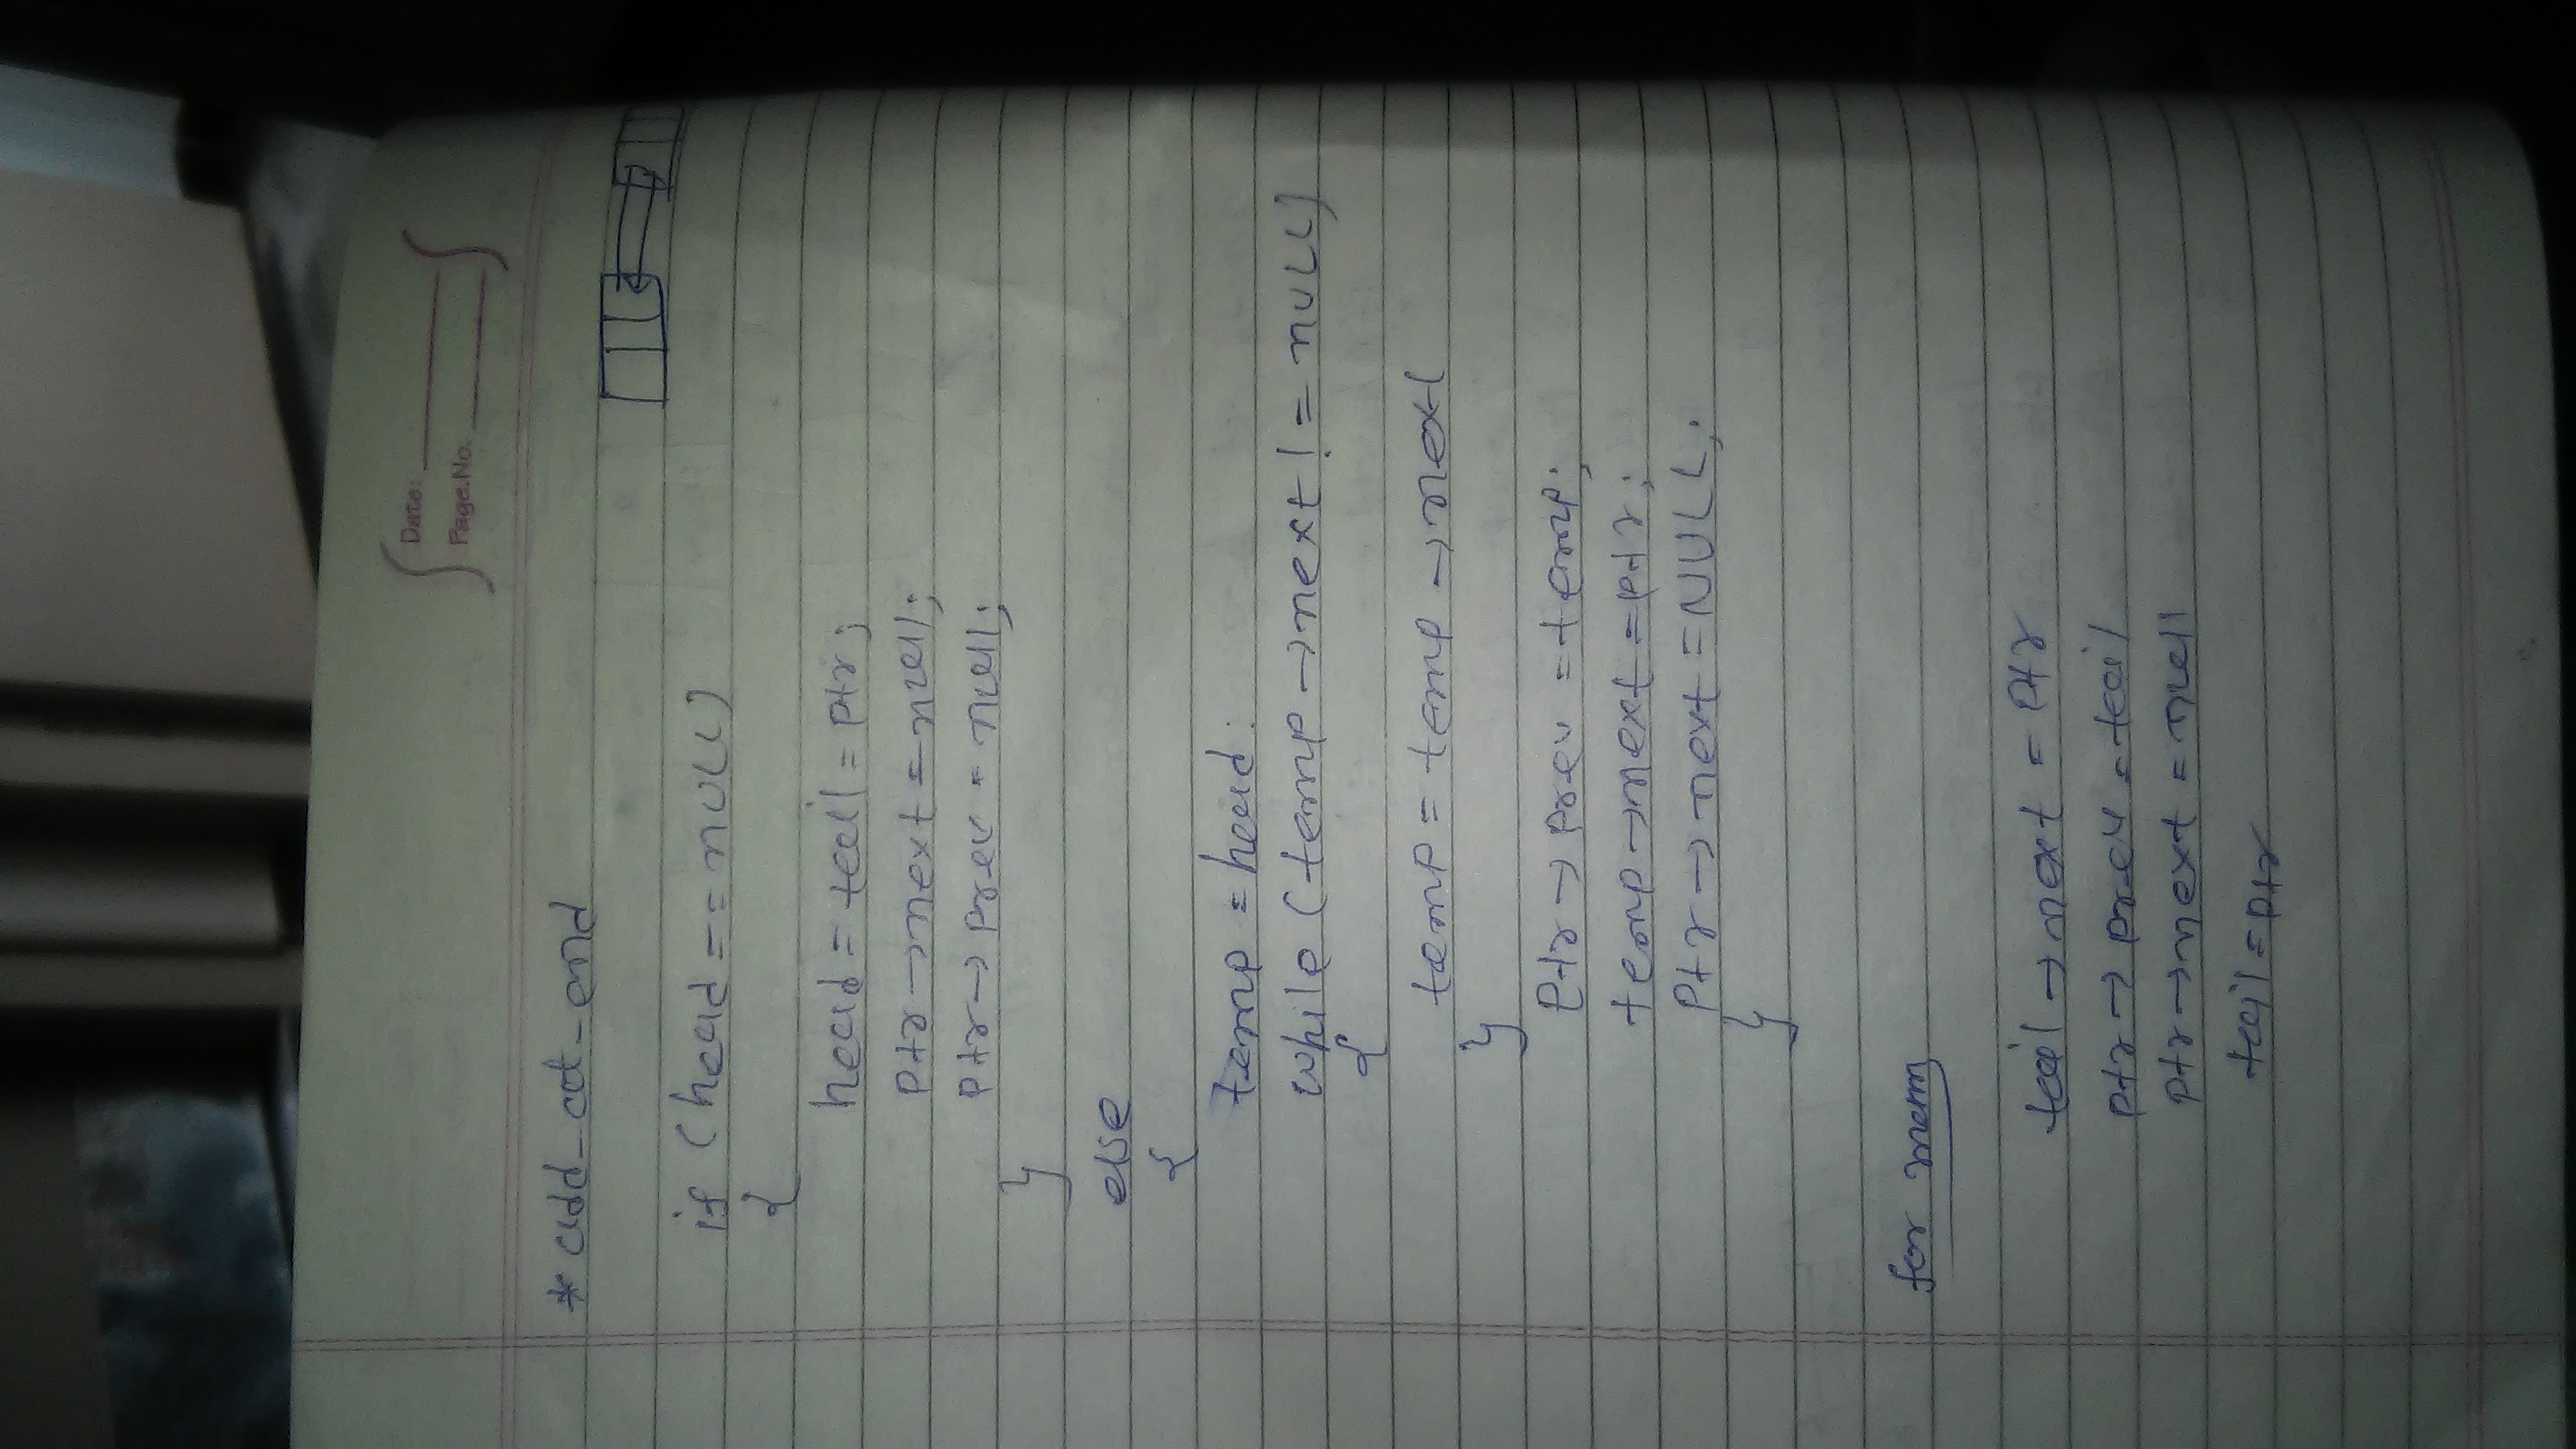 Date:
Page.No.
* add_at_end
if (head == nULL)
{
head = tail = ptr;
ptr → next = null;
ptr → prev = null;
}
else
{
temp = head;
while (temp → next != nULL)
{
temp = temp → next
}
Ptr → prev = temp;
temp → next = ptr;
Ptr → next = NULL;
}
for
tail → next = ptr
ptr → prev = tail
ptr → next = null
tail = ptr